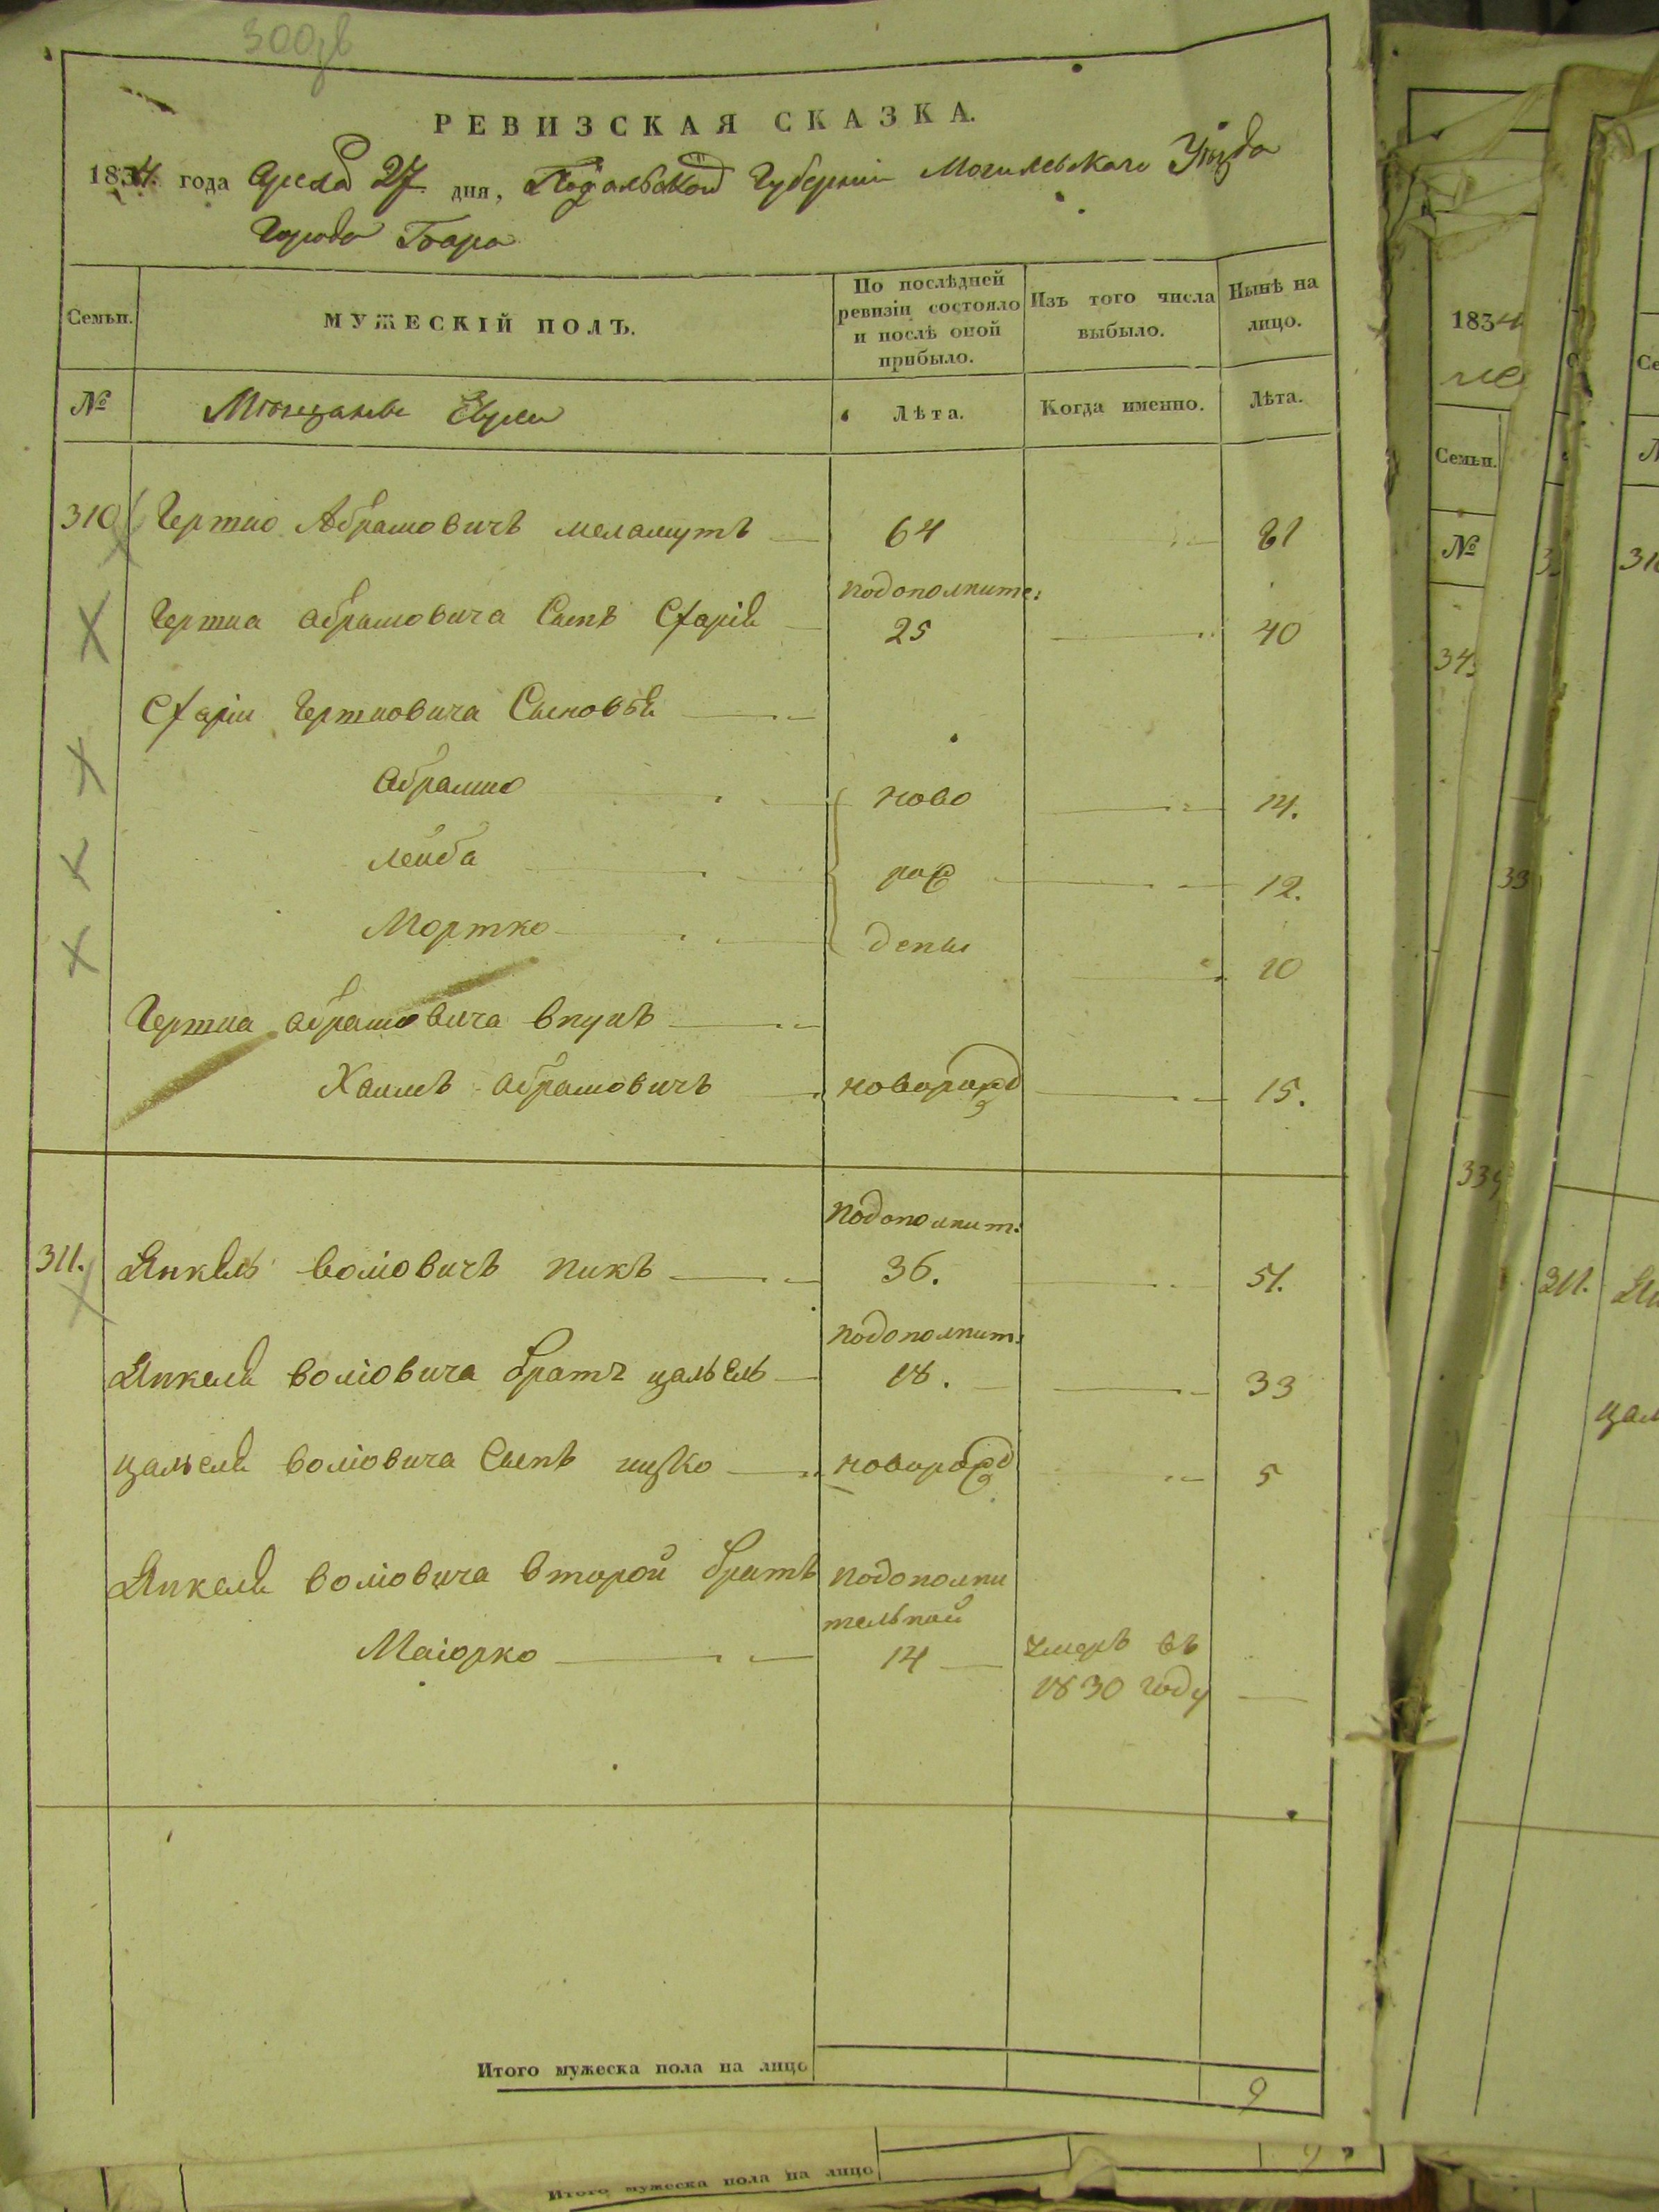 300зв
РЕВИЗСКАЯ СКАЗКА.
1834 года Апреля 27 дня, Подольской Губернии Могилевского Уезда
Города Бара
Семьи. МУЖЕСКІЙ ПОЛЪ. По послѣдней ревизіи состояло и послѣ оной прибыло. Изъ того числа выбыло. Нынѣ на лицо.
№ Мещане Евреи Лѣта. Когда именно. Лѣта.
310 Гершко Абрамовичъ меламутъ 64 81
подополните:
Гершка абрамовича Сынъ 25 40
Гершковича Сыновья
Абрамко ново 14.
Лейба рож 12.
Мортко дены 10
Гершка абрамовича внукъ
Хаимъ абрамовичъ новорожд 15.
подополнит:
311. Янкель воліовичъ пикъ 36. 51.
подополнит:
Янкеля воліовича братъ цальель 18. 33
цальеля воліовича Сынъ ицко новорожд 5
Янкеля воліовича второй братъ подополни
тельной
Маіорко 14 умеръ въ
1830 году
Итого мужеска пола на лицо 9
1834
Семьи.
№
311.
Итого мужеска пола на лицо